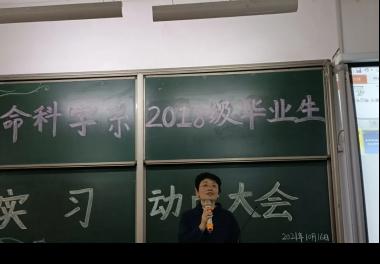 命科学系 2018级毕业生
实习 动员大会
2021年10月16日